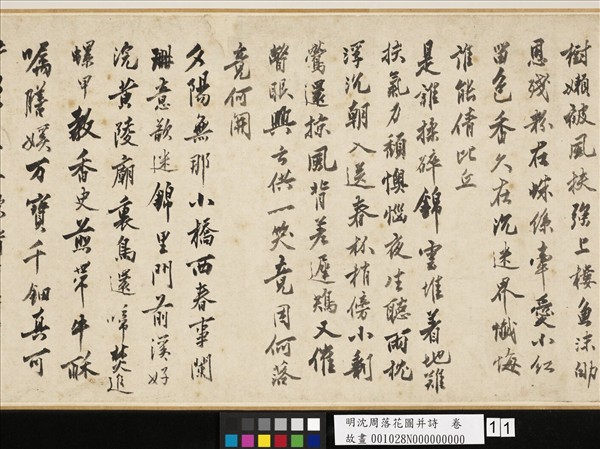 樹懶被風扶強上樓魚沫呴
恩殘粉在蛛絲牽愛小紅
留色香久在沉迷界懺悔
誰能倩比丘
是誰揉碎錦雲堆着地難
扶氣力頹懊惱夜生聽雨枕
浮沉朝入送春杯梢傍小剩
鶯還掠風背差遲鴆又催
瞥眼興亡供一笑竟因何落
竟何開
夕陽無那小橋西春事闌
珊意欲迷錦里門前溪好
浣黃陵廟裏鳥還啼焚追
螺甲教香史煎帶牛酥
囑膳娭万寶千鈿真可
明沈周落花圖并詩　卷
故畫 001028N000000000
11